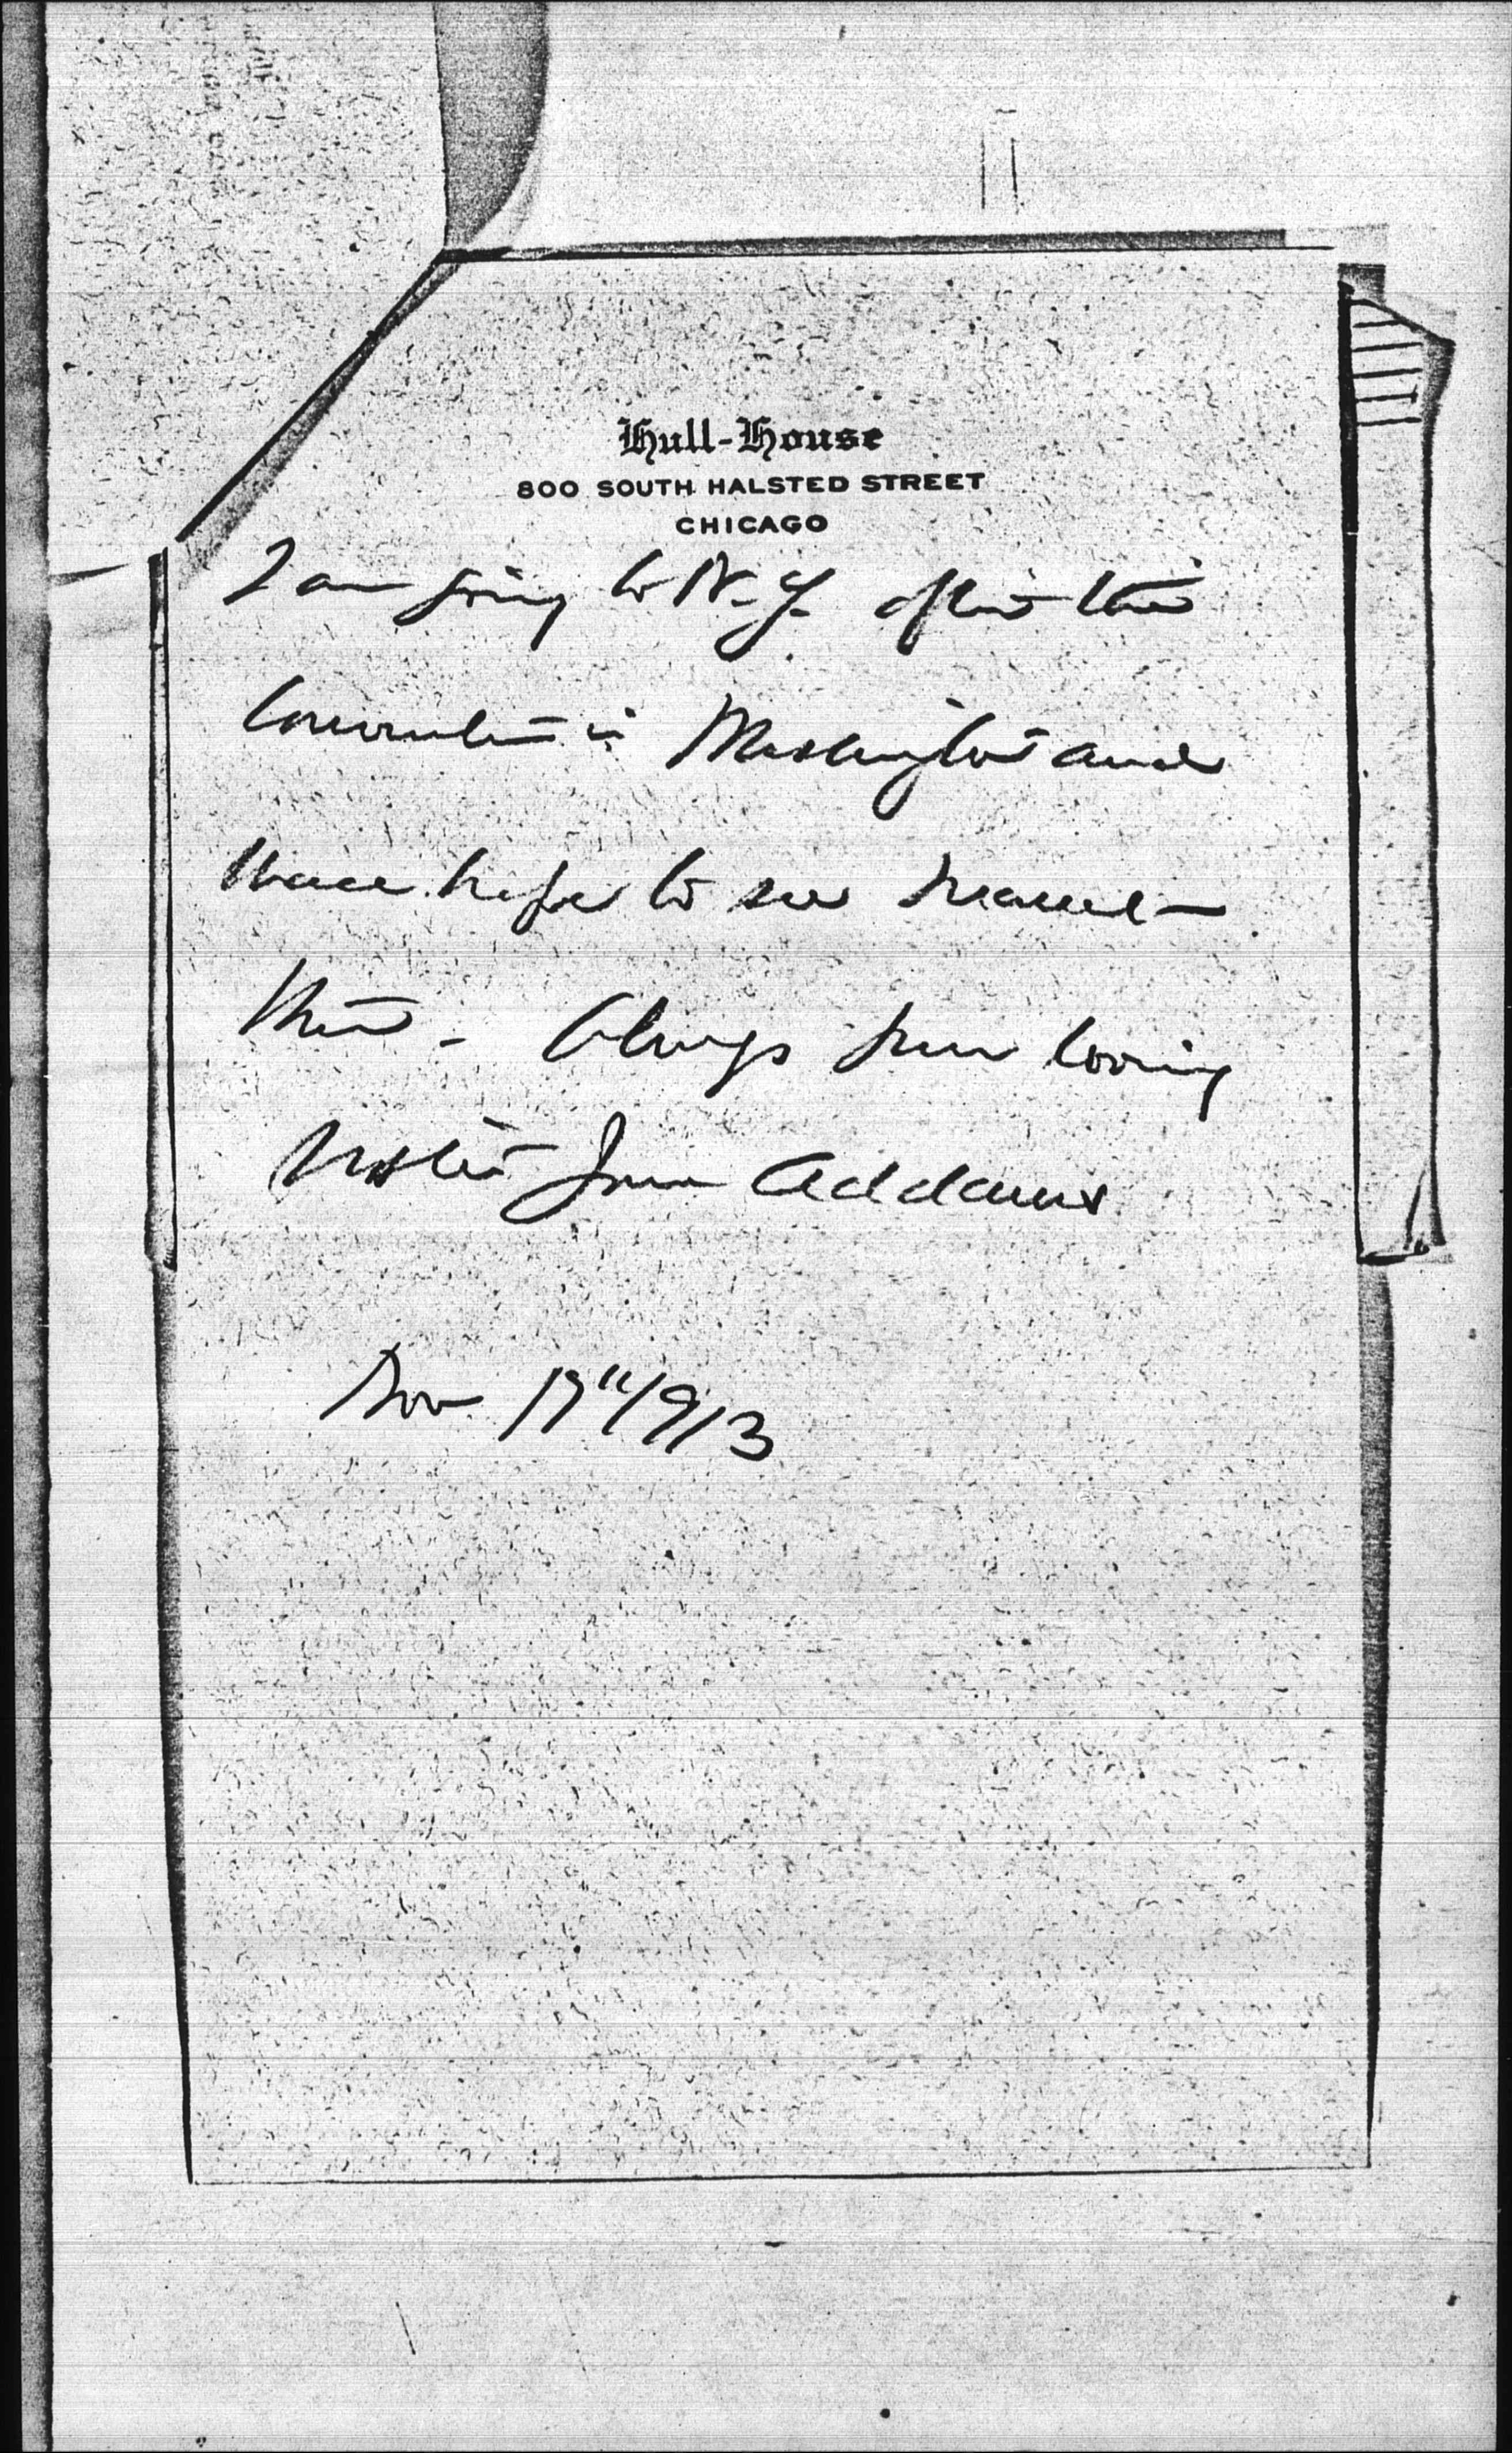 Hull-House
800 SOUTH HALSTED STREET
CHICAGO
I am going to N.Y. after the
Convention in Washington and
shall hope to see Marcet
then - Always your loving
sister Jane Addams
Nov 17" 1913